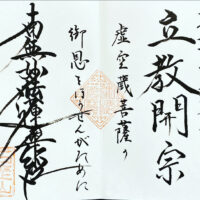 立教開宗
虚空蔵菩薩の
御恩をほうぜんがために
南無妙法蓮華経